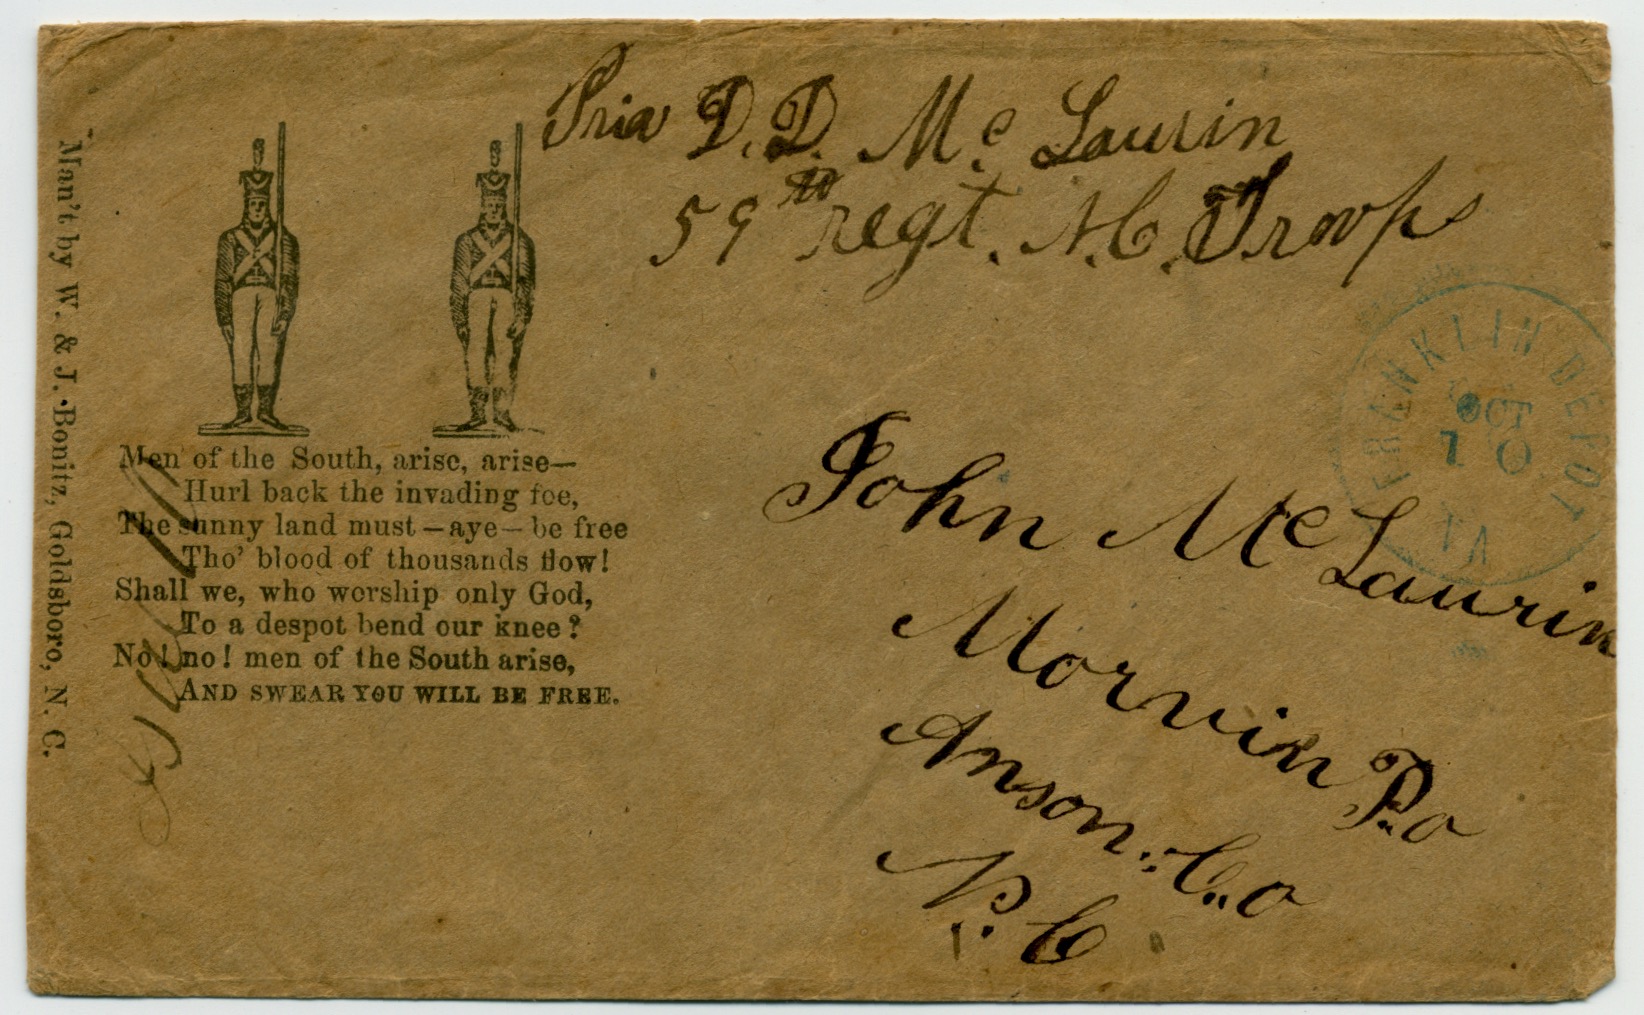 Man't by W. & J. Bonitz, Goldsboro, N. C.
Priv D. D. Mc Laurin
59th regt. N.C. Troops
FRANKLIN DEPOT
OCT
10
VA
Men of the South, arise, arise—
Hurl back the invading foe,
The sunny land must—aye—be free
Tho' blood of thousands flow!
Shall we, who worship only God,
To a despot bend our knee?
No! no! men of the South arise,
AND SWEAR YOU WILL BE FREE.
John Mc Laurin
Morvin P.o
Anson. C.o
N. C